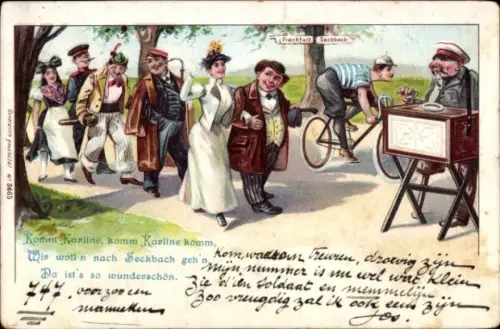 Frankfurt Seckbach
Generation geschützt Nº 3665
Komm Karline, komm Karline komm,
Wir woll'n nach Seckbach geh'n,
Da ist's so wunderschön.
kom, waarom treuren, droevig zijn
mijn nummer is nu wel wat klein
Zie dien soldaat en memmelijn
Zoo vreugdig zal ik ook eens zijn
Jos.
747. voor zoo een
manneken